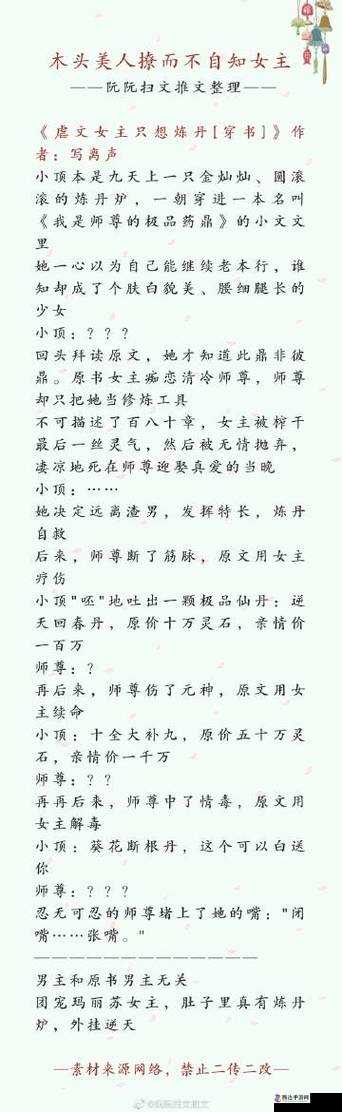 木头美人撩而不自知女主
——阮阮扫文推文整理——
《虐文女主只想炼丹[穿书]》作
者：写离声
小顶本是九天上一只金灿灿、圆滚
滚的炼丹炉，一朝穿进一本名叫
《我是师尊的极品药鼎》的小文文
里
她一心以为自己能继续老本行，谁
知却成了个肤白貌美、腰细腿长的
少女
小顶：？？？
回头拜读原文，她才知道此鼎非彼
鼎。原书女主痴恋清冷师尊，师尊
却只把她当修炼工具
不可描述了百八十章，女主被榨干
最后一丝灵气，然后被无情抛弃，
凄凉地死在师尊迎娶真爱的当晚
小顶：……
她决定远离渣男，发挥特长，炼丹
自救
后来，师尊断了筋脉，原文用女主
疗伤
小顶"呸"地吐出一颗极品仙丹：逆
天回春丹，原价十万灵石，亲情价
一百万
师尊：？
再后来，师尊伤了元神，原文用女
主续命
小顶：十全大补丸，原价五十万灵
石，亲情价一千万
师尊：？？
再再后来，师尊中了情毒，原文用
女主解毒
小顶：葵花断根丹，这个可以白送
你
师尊：？？？
忍无可忍的师尊堵上了她的嘴："闭
嘴……张嘴。"
男主和原书男主无关
团宠玛丽苏女主，肚子里真有炼丹
炉，外挂逆天
—素材来源网络，禁止二传二改—